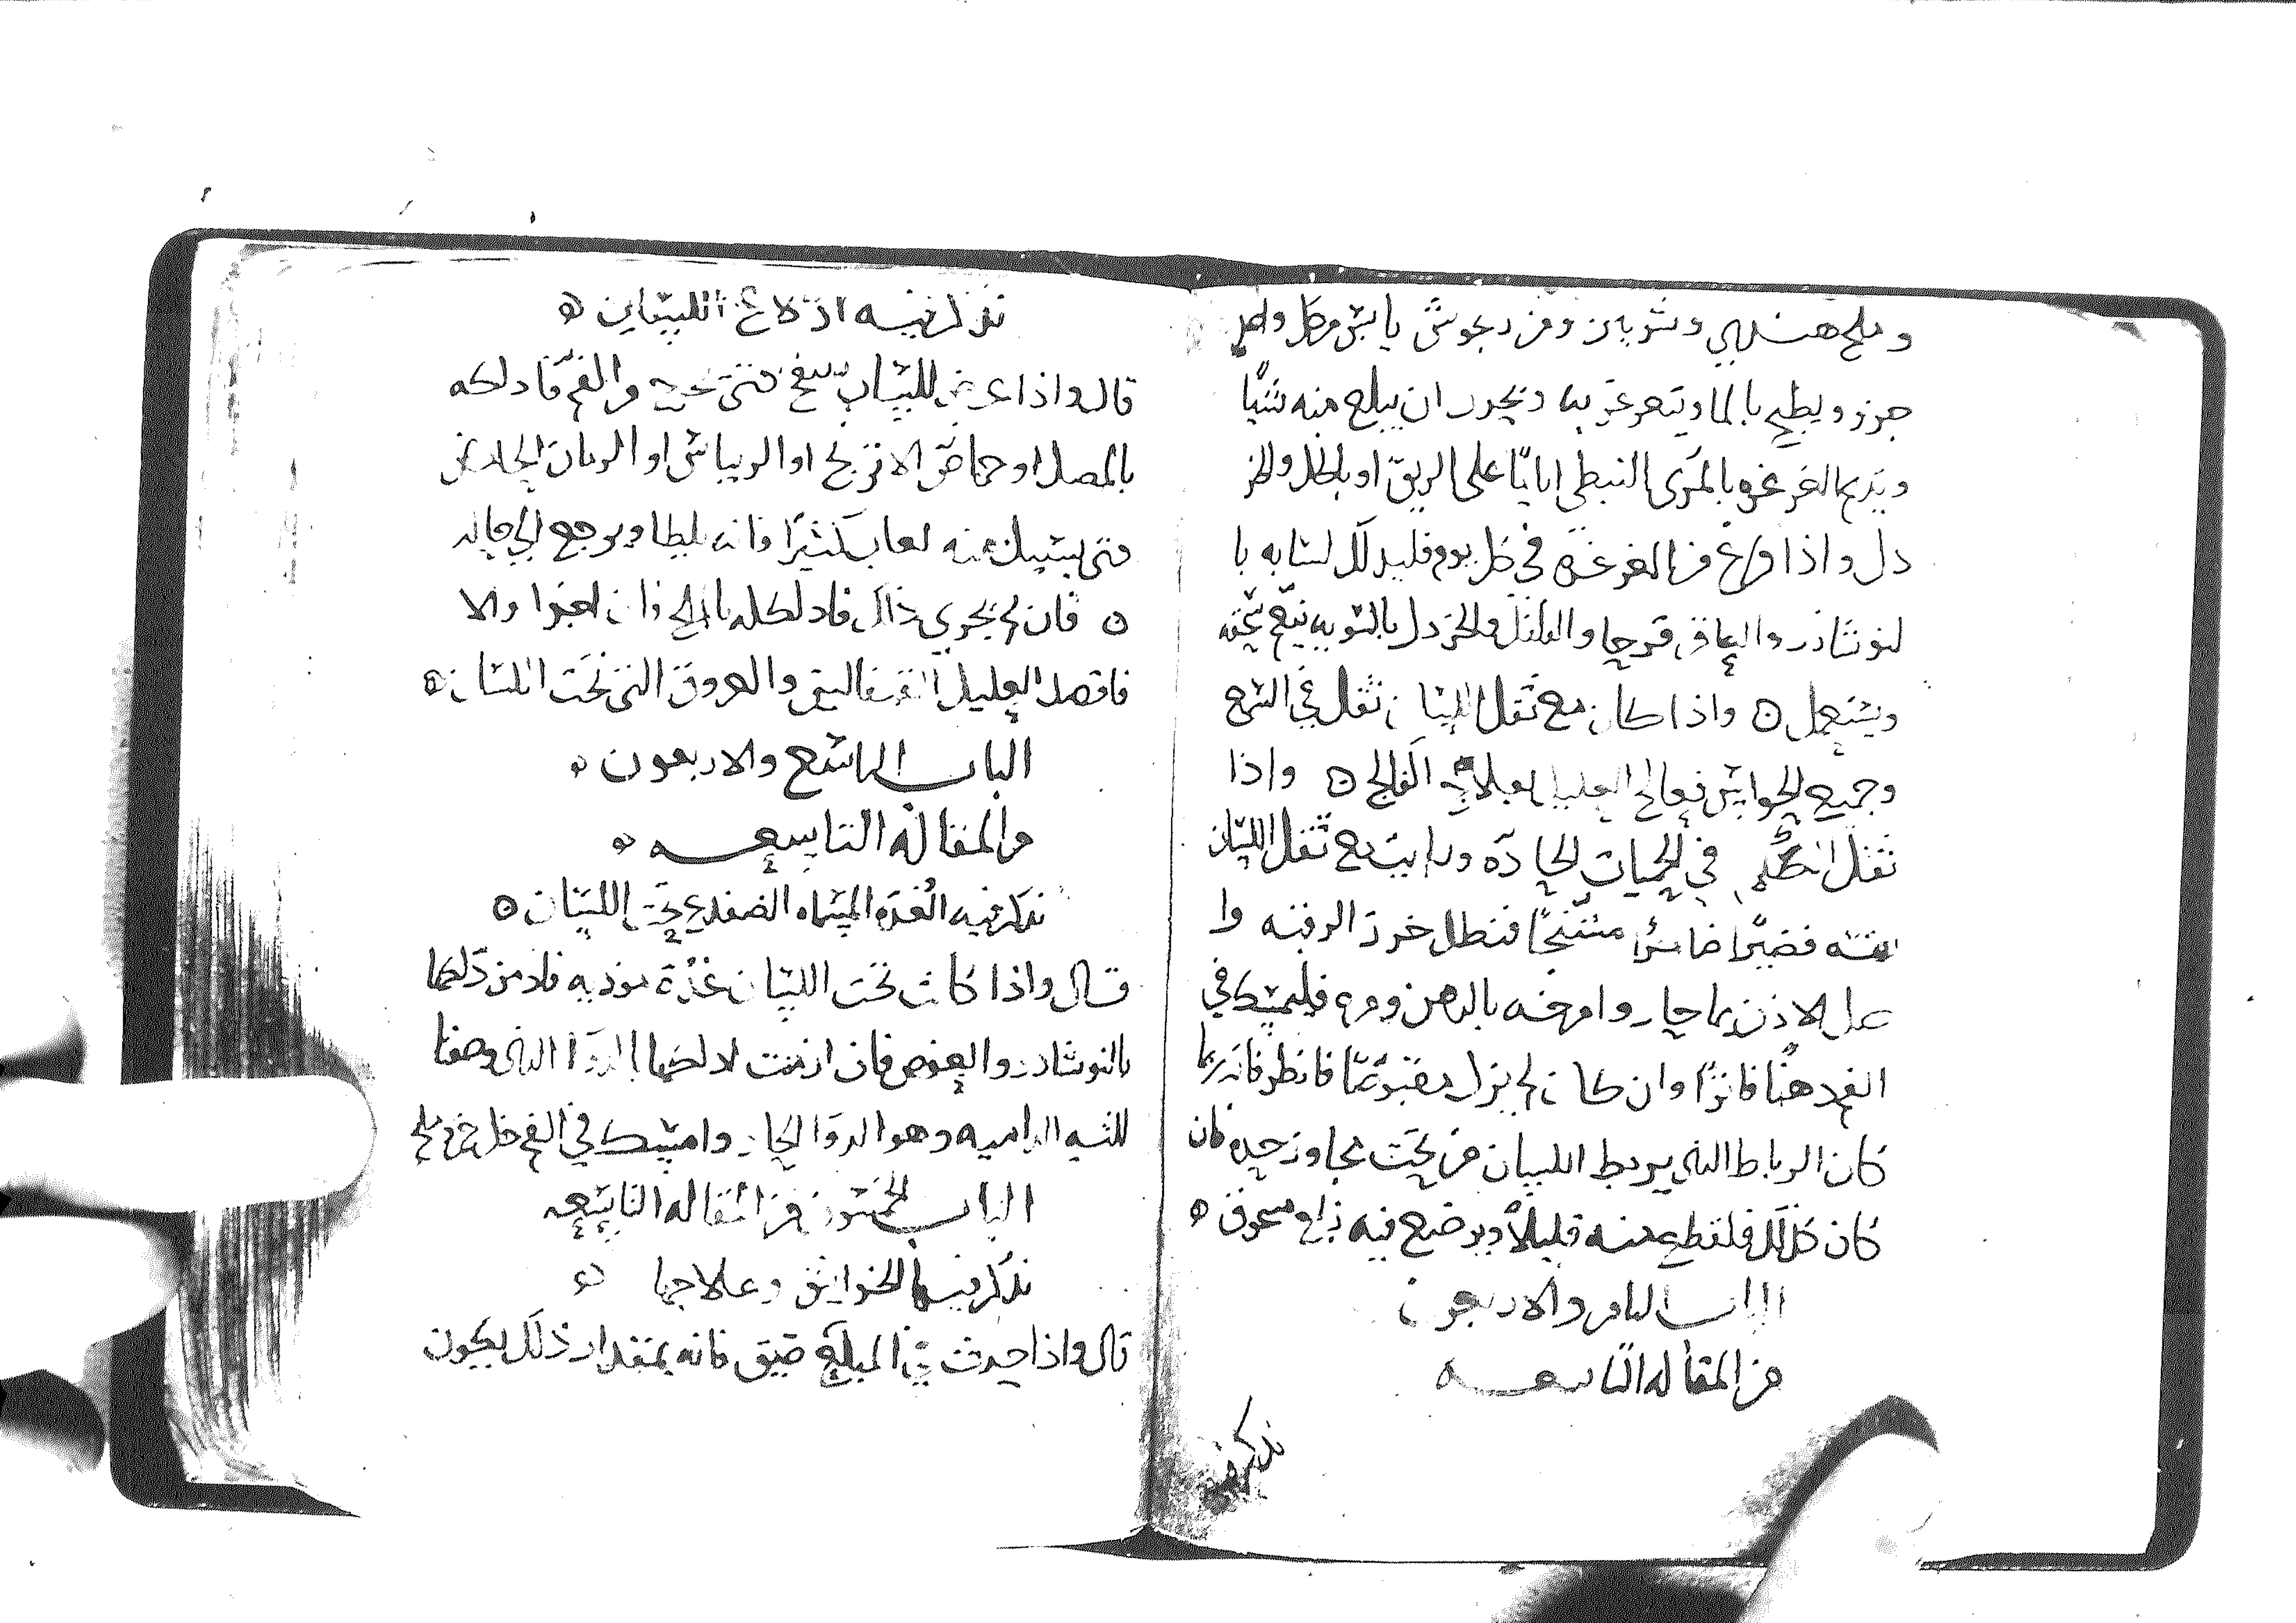 وملح هندي وشونيز ومرزنجوش يابس من كل واحد
جزو ويطبخ بالما ويتغرغر به ويحذر ان يبلع منه شيًا
ويديم الغرغره بالمرى النبطى اياما على الريق او بالخل والخر
دل واذا فرغ من الغرغره في كل يوم فليدلك لسانه با
لنوشادر والعاقر قرحا والفلفل والخردل بالسويه تتخذ
ويستعمل ه واذا كان مع ثقل اللسان ثقل في السمع
وجميع الحواس فعالج العليل بعلاج الفالج ه واذا
ثقل الكلام في الحميات الحاده ورايت مع ثقل اللسان
قصيرًا متشنجًا فنطل خرز الرقبه وا
صل الاذن بما حار وامرخه بالدهن ومره فليمسك في
الفم دهنا فاترًا وان كان لم يزل مقبوضًا فانظر فانه ربما
كان الرباط الذى يربط اللسان من تحت مجاوز حده فان
كان كذلك فلتقطع منه قليلاً ويوضع فيه زاج مسحوق ه
الباب الثامن والاربعون
من المقاله التاسعه
نذكر فيه
نذكر فيه ادلاع اللسان ه
قال واذا عرض للسان حتى يخرج من الفم فادلكه
بالمصل او حماض الاترج او الريباس او الرمان الحامض
حتى يسيل منه لعاب كثيرًا فانه يلطا ويرجع الى حاله
ه فان لم يجزى ذلك فادلكه بالملح فان والا
فافصد العليل القيفالين والعروق التى تحت اللسان ه
الباب التاسع والاربعون ه
من المقاله التاسعه ه
نذكر فيه الغده المسماه الضفدع تحت اللسان ه
قال واذا كانت تحت اللسان غدة موذيه فادمن دلكها
بالنوشادر والعفص فان ازمنت ادلكها بالدوا الذى وصفنا
للثه الداميه وهو الدوا الحار وامسك في الفم خل خمر وملح
الباب الخمسون من المقاله التاسعه
نذكر فيها الخوانيق وعلاجها ه
قال واذا حدث في المبلع ضيق فانه بمقدار ذلك يكون